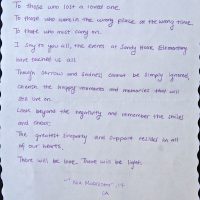 To those who lost a loved one.
To those who were in the wrong place at the wrong time.
To those who must carry on.
I say to you all, the events at Sandy Hook Elementary
have touched us all.
Though sorrow and sadness cannot be simply ignored,
cherish the happy moments and memories that will
still live on.
Look beyond the negativity and remember the smiles
and cheer.
The greatest sympathy and support resides in all
of our hearts.
There will be love. There will be light.
CA